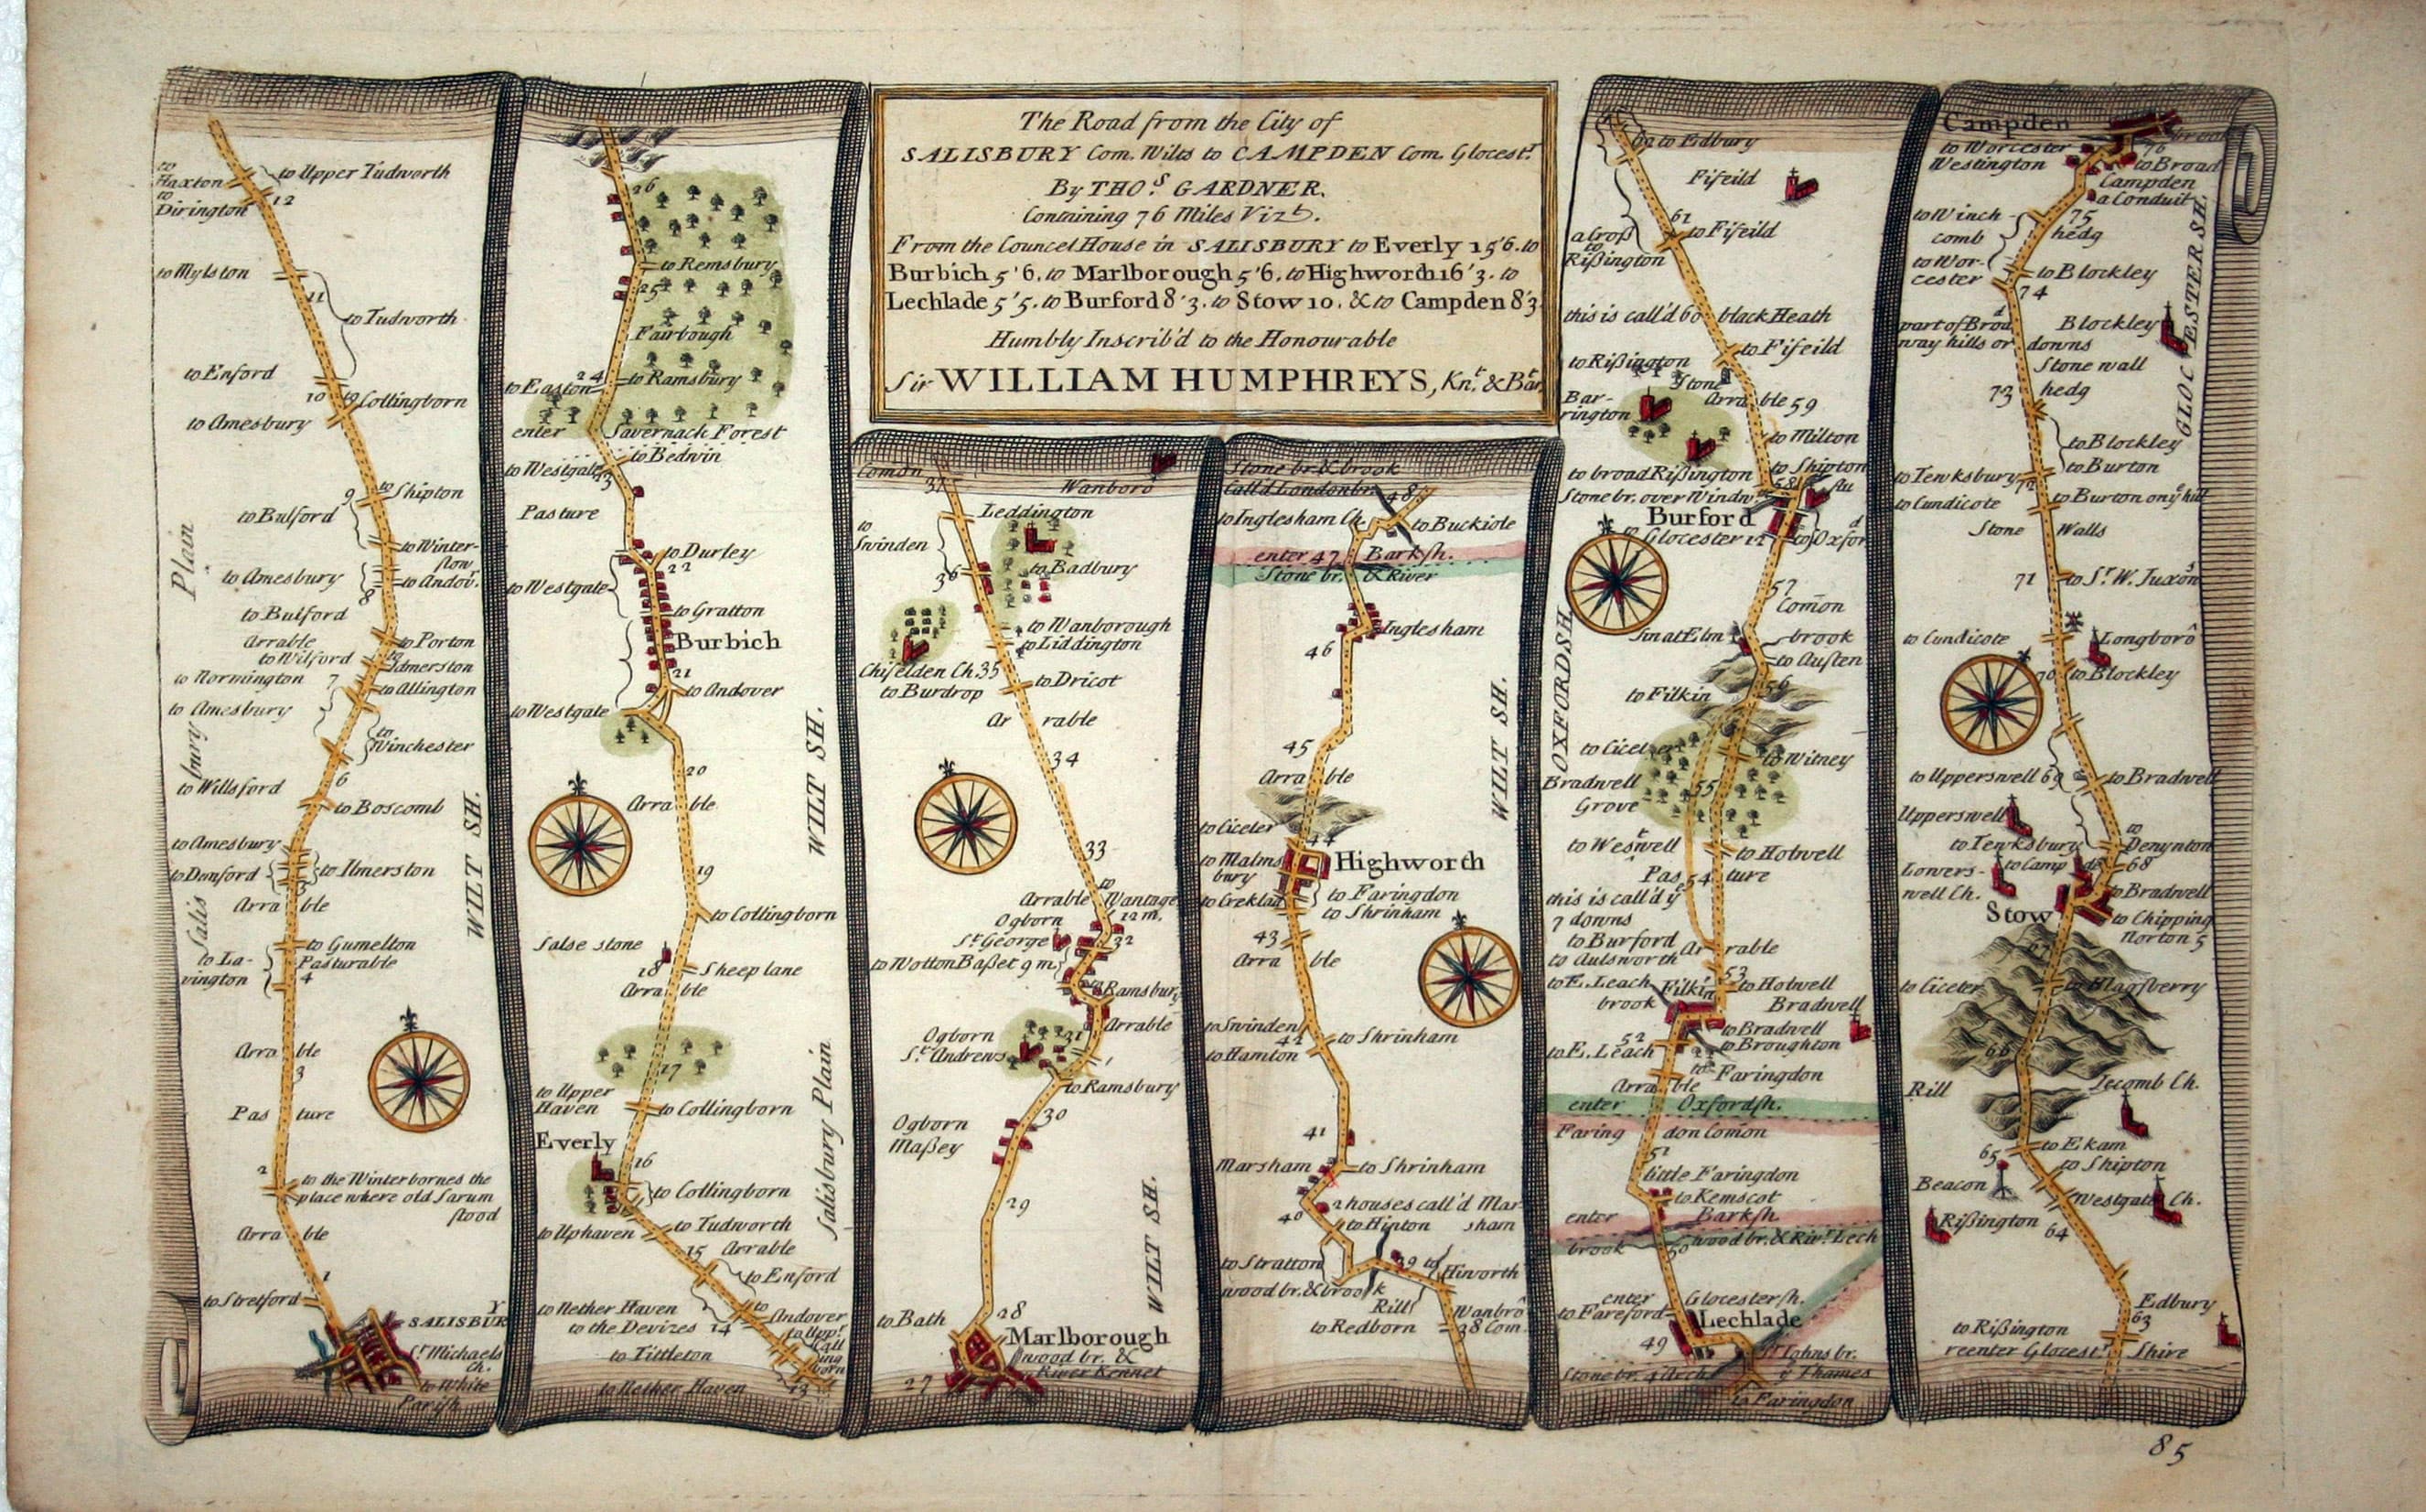 The Road from the City of
SALISBURY Com. Wilts to CAMPDEN Com. Glocestr.
By THOS. GARDNER.
Containing 76 Miles Vizt.
From the Councel House in SALISBURY to Everly 15'6. to
Burbich 5'6. to Marlborough 5'6. to Highworth 16'3. to
Lechlade 5'5. to Burford 8'3. to Stow 10. & to Campden 8'3
Humbly Inscrib'd to the Honourable
Sir WILLIAM HUMPHREYS, Knt. & Bart.
to Haxton
to Upper Tudworth
to Dirington
12
to Mylston
11
to Tudworth
to Enford
10
to Collingborn
to Amesbury
9
to Shipton
to Bulford
to Winterslow
to Amesbury
to Andovr.
8
to Bulford
Arrable
to Porton
to Wilford
to Idmerston
to Normington
7
to Allington
to Amesbury
to Winchester
6
to Willsford
to Boscomb
to Amesbury
to Dornford
to Ilmerston
5
Arrable
to Gumelton
to Lavington
Pasturable
4
Arrable
3
Pasture
2
to the Winterbornes the
place where old Sarum
stood
Arrable
1
to Stretford
SALISBURY
St. Michaels
Ch.
to White
Parish
Salisbury Plain
WILT SH.
26
to Remsbury
25
Fairbough
to Easton
24
to Ramsbury
enter Savernach Forest
to Bedwin
to Westgate
23
Pasture
to Durley
22
to Westgate
to Gratton
Burbich
21
to Andover
to Westgate
20
Arrable
19
to Collingborn
Salse stone
18
Sheep lane
Arrable
17
to Upper
Haven
to Collingborn
Everly
16
to Collingborn
to Uphaven
to Tudworth
15
Arrable
to Enford
to Nether Haven
to Andover
to the Devizes
14
to Uppr. Collingborn
to Tittleton
to Nether Haven
13
WILT SH.
Salisbury Plain
Comon
37
Wanboro
Leddington
to Swinden
36
to Badbury
to Wanborough
to Liddington
Chiselden Ch.
35
to Burdrop
to Dricot
Arrable
34
33
Arrable
to Wantage
12 m.
Ogborn
St. George
32
to Wotton Basset 9 m.
to Ramsbury
Ogborn
St. Andrews
31
Arrable
to Ramsbury
30
Ogborn
Massey
29
to Bath
28
Marlborough
wood br. &
River Kennet
27
WILT SH.
Stone br. & brook
call'd London br.
48
to Inglesham Ch.
to Buckiole
enter 47 Barksh.
Stone br. & River
Inglesham
46
45
Arrable
to Ciceter
44
Highworth
to Malmsbury
to Faringdon
to Creklad
to Shrinham
43
Arrable
to Swinden
to Shrinham
42
to Hamton
41
Marsham
to Shrinham
2 houses call'd Marsham
40
to Hinton
to Stratton
39
to Hiworth
wood br. & brook
Rill
Wanbro
to Redborn
38 Com
WILT SH.
62
to Edbury
Fifeild
61
to Fifeild
a cross
to Rissington
this is call'd 60 black Heath
to Fifeild
to Rissington
Stone
Barrington
Arrable 59
to Milton
to broad Rissington
to Shipton
Stone br. over Windr
58
Burford
to Glocester 12
to Oxford
57
Comon
brook
to Austen
56
to Filkin
to Ciceter
to Witney
Bradwell
Grove
55
to Weswell
to Holwell
Pasture
54
this is call'd ye
7 downs
to Burford
Arrable
to Aulsworth
53
to E. Leach
to Holwell
brook
Filkin
Bradwell
to Bradwell
52
to E. Leach
to Broughton
to Faringdon
Arrable
enter Oxfordsh.
Faringdon Comon
51
little Faringdon
to Kemscot
enter Barksh.
brook
50
wood br. & Rivr. Lech
enter Glocestersh.
to Fareford
Lechlade
49
St. Johns br.
Stone br. 4 Arch
ye Thames
to Faringdon
OXFORDSH.
Campden
to Worcester
brook
76
Westington
to Broad
Campden
a Conduit
to Winchcomb
75
hedg
to Worcester
to Blockley
74
part of Brodway hills or downs
Blockley
Stone wall
73
hedg
to Blockley
to Burton
to Tewksbury
72
to Cundicote
to Burton on ye hill
Stone Walls
71
to Sr. W. Juxons
to Cundicote
Longboro
70
to Blockley
to Upperswell
69
to Bradwell
Upperswell
to Denynton
to Tewksbury
68
to Campden
Lowerswell Ch.
to Bradwell
Stow
to Chipping
Norton 5
67
to Ciceter
to Slagsberry
66
Rill
Iecomb Ch.
65
to Ekam
to Shipton
Beacon
Westgate Ch.
Rissington
64
Edbury
63
to Rissington
reenter Glocestr. Shire
GLOCESTER SH.
85